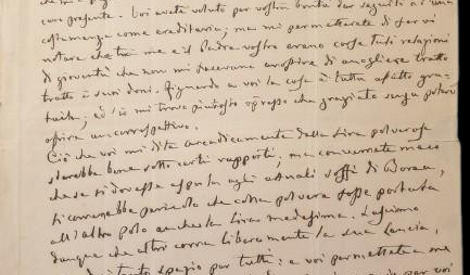 che mi
con presente. Voi avete voluto per vostra bontà dar seguito a una
costumanza come ereditaria; ma mi permetterete di farvi
notare che tra me e il Padre vostro erano corse tali relazioni
di gioventù che non mi facevano arrossire di accogliere tratto
tratto i suoi doni. Riguardo a voi la cosa è tutta affatto gra-
tuita, ed io mi trovo piuttosto oppresso che graziato senza potervi
offrire un corrispettivo.
Ciò che voi mi dite arcadicamente della Lira polverosa
starebbe bene sotto certi rapporti, ma converrete meco
che se si dovesse esporla agli attuali soffi di Borea,
si correrebbe pericolo che colla polvere fosse portata
all'altro polo anche la Lira medesima. Lasciamo
dunque che altri corra liberamente la sua Lancia,
spazio per tutti: a voi permettete a me
per voi